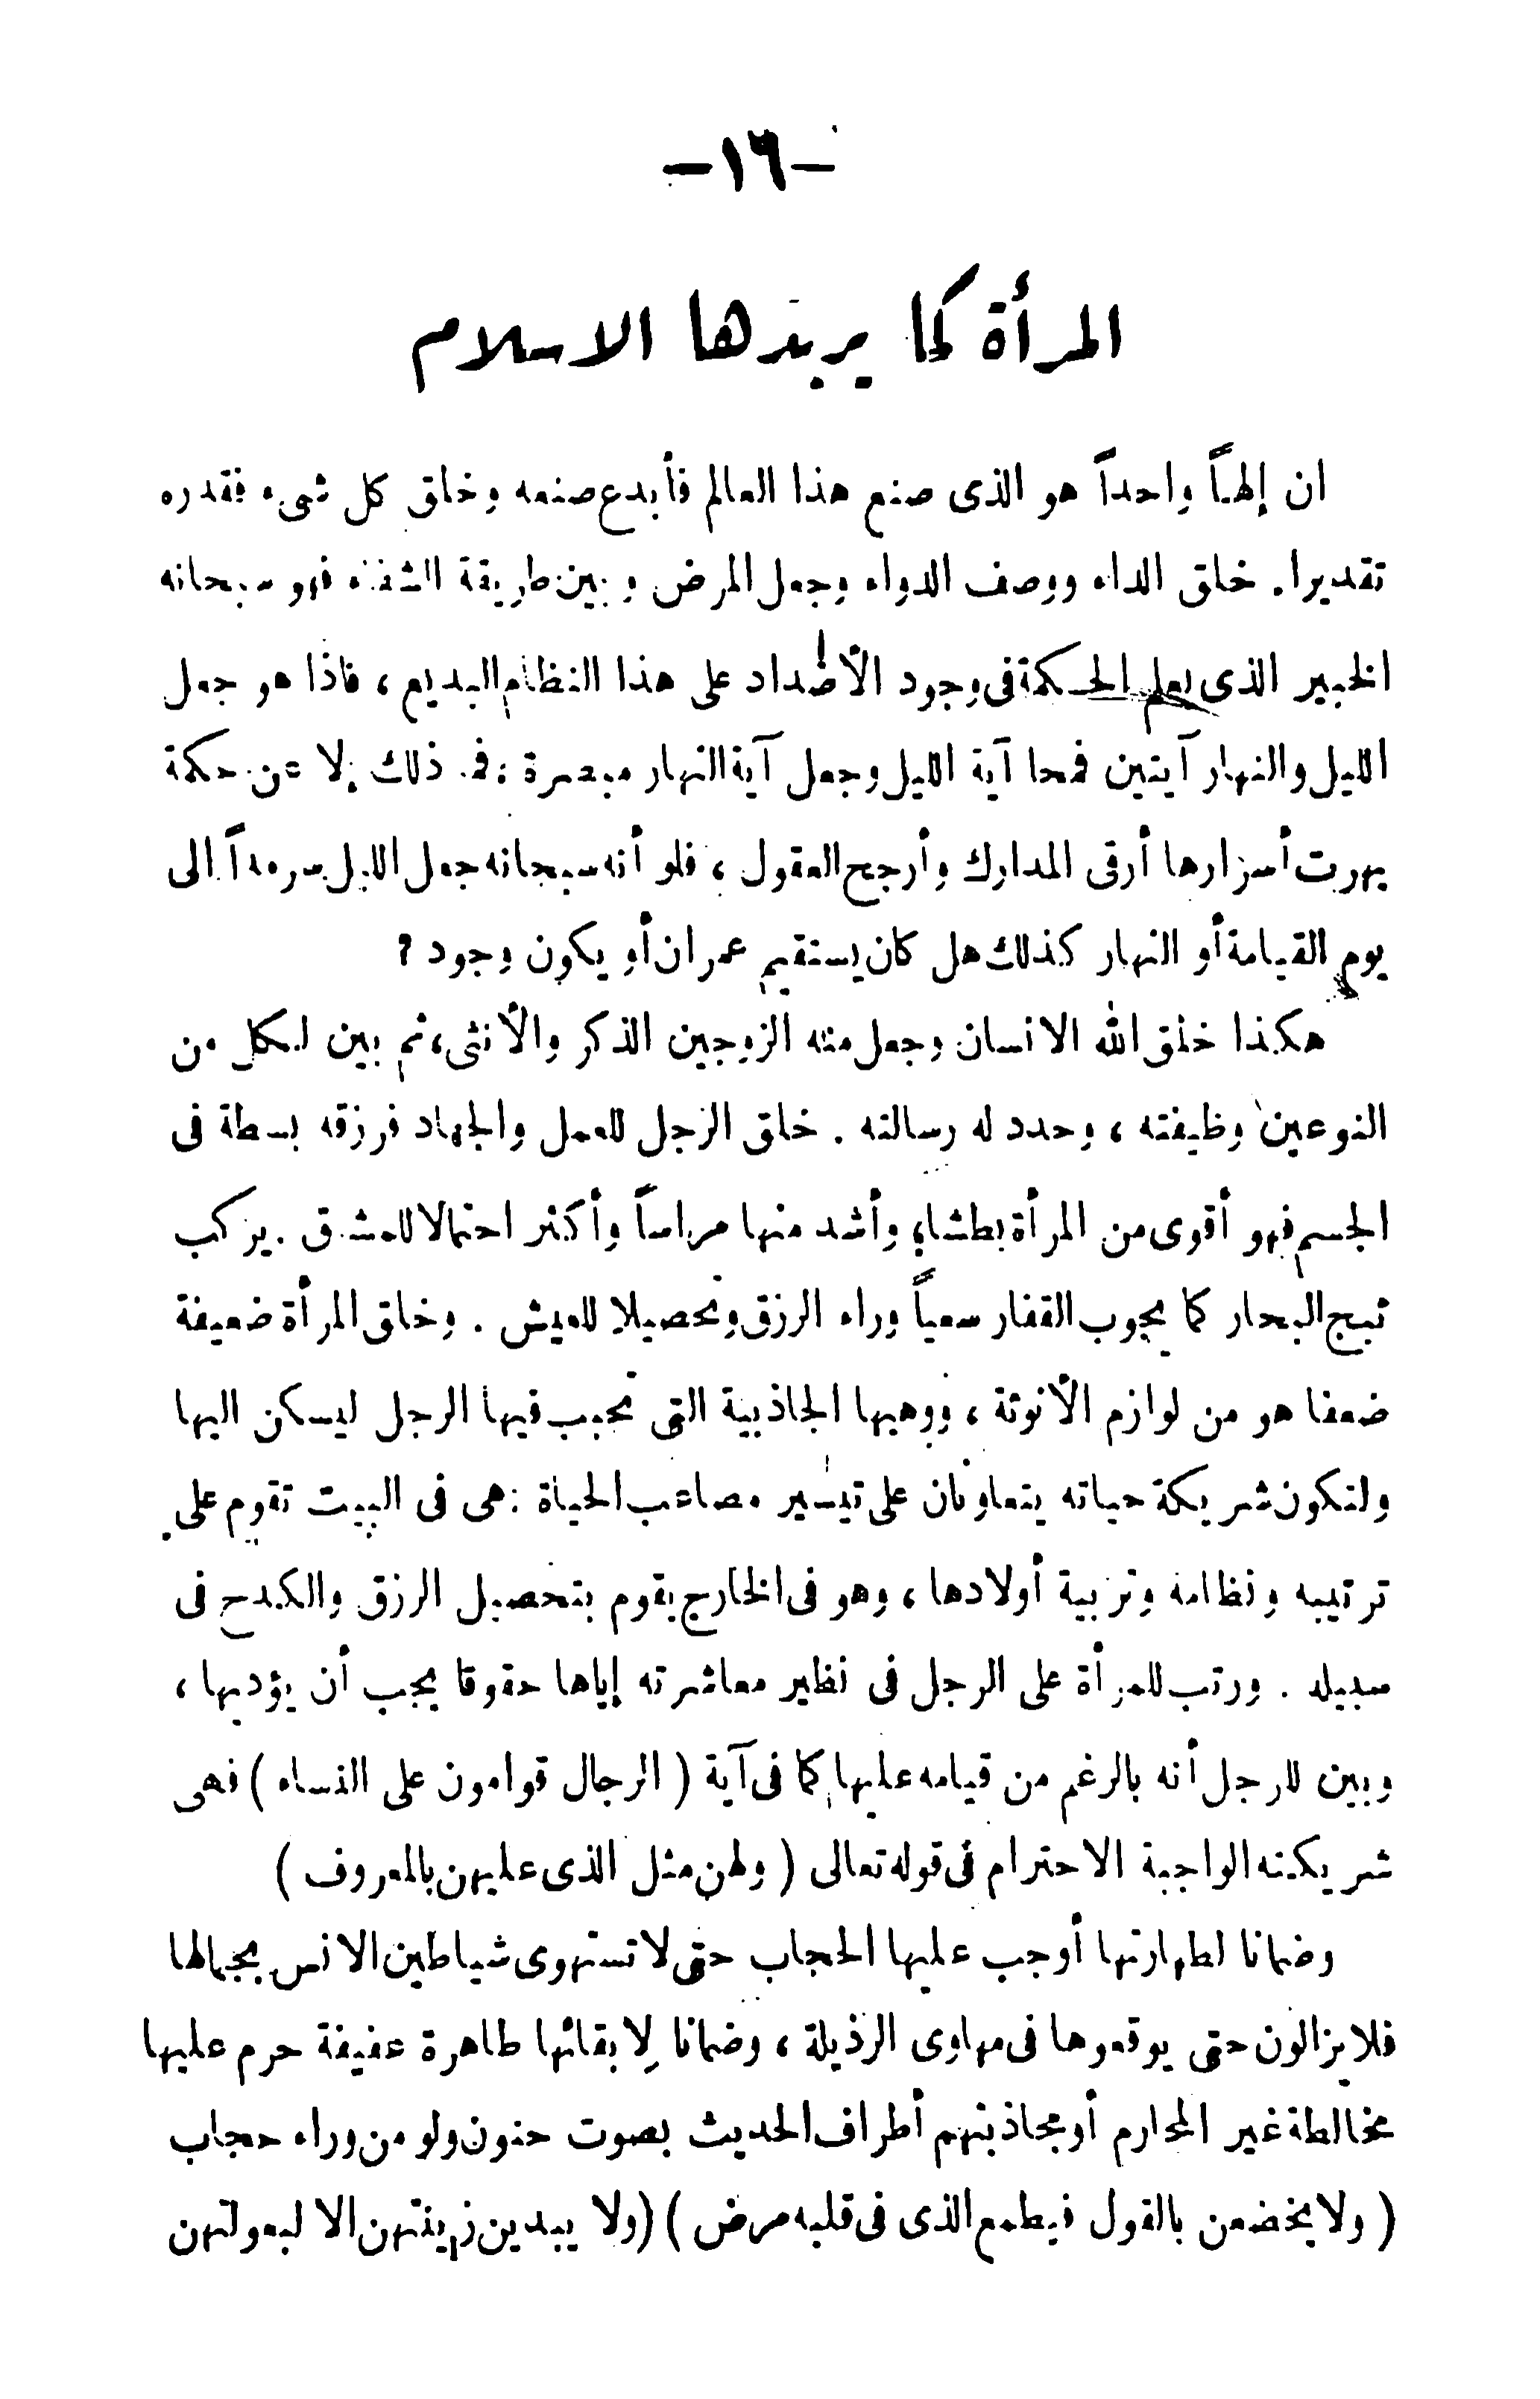 -١٦-
المرأة كما يريدها الاسلام
ان إلهاً واحداً هو الذى صنع هذا العالم فأبدع صنعه وخلق كل شىء فقدره
تقديرا. خلق الداء ووصف الدواء وجعل المرض وبين طريقة الشفاء فهو سبحانه
الخبير الذى يعلم الحكمة فى وجود الأضداد على هذا النظام البديع ، فاذا هو جعل
الليل والنهار آيتين فمحا آية الليل وجعل آية النهار مبصرة : فما ذلك إلا عن حكمة
بهرت أسرارها أرقى المدارك وأرجح العقول ، فلو أنه سبحانه جعل الليل سرمداً الى
يوم القيامة أو النهار كذلك هل كان يستقيم عمران أو يكون وجود ؟
هكذا خلق الله الانسان وجعل منه الزوجين الذكر والأنثى ، ثم بين لكل من
النوعين وظيفته ، وحدد له رسالته . خلق الرجل للعمل والجهاد فرزقه بسطة فى
الجسم فهو أقوى من المرأة بطشا، وأشد منها مراساً وأكثر احتمالا للمشاق . يركب
ثبج البحار كما يجوب القفار سعياً وراء الرزق وتحصيلا للعيش . وخلق المرأة ضعيفة
ضعفا هو من لوازم الأنوثة ، ووهبها الجاذبية التى تحبب فيها الرجل ليسكن اليها
ولتكون شريكة حياته يتعاونان على تيسير مصاعب الحياة : هى فى البيت تقوم على
ترتيبه ونظامه وتربية أولادها ، وهو فى الخارج يقوم بتحصيل الرزق والكدح فى
سبيله . ورتب للمرأة على الرجل فى نظير معاشرته إياها حقوقا يجب أن يؤديها ،
وبين للرجل أنه بالرغم من قيامه عليها كما فى آية ( الرجال قوامون على النساء ) فهى
شريكته الواجبة الاحترام فى قوله تعالى ( ولهن مثل الذى عليهن بالمعروف )
وضمانا لطهارتها أوجب عليها الحجاب حتى لا تستهوى شياطين الانس بجمالها
فلا يزالون حتى يوقعوها فى مهاوى الرذيلة ، وضمانا لابقائها طاهرة عفيفة حرم عليها
مخالطة غير المحارم أو مجاذبتهم أطراف الحديث بصوت حنون ولو من وراء حجاب
( ولا يخضعن بالقول فيطمع الذى فى قلبه مرض ) ( ولا يبدين زينتهن الا لبعولتهن